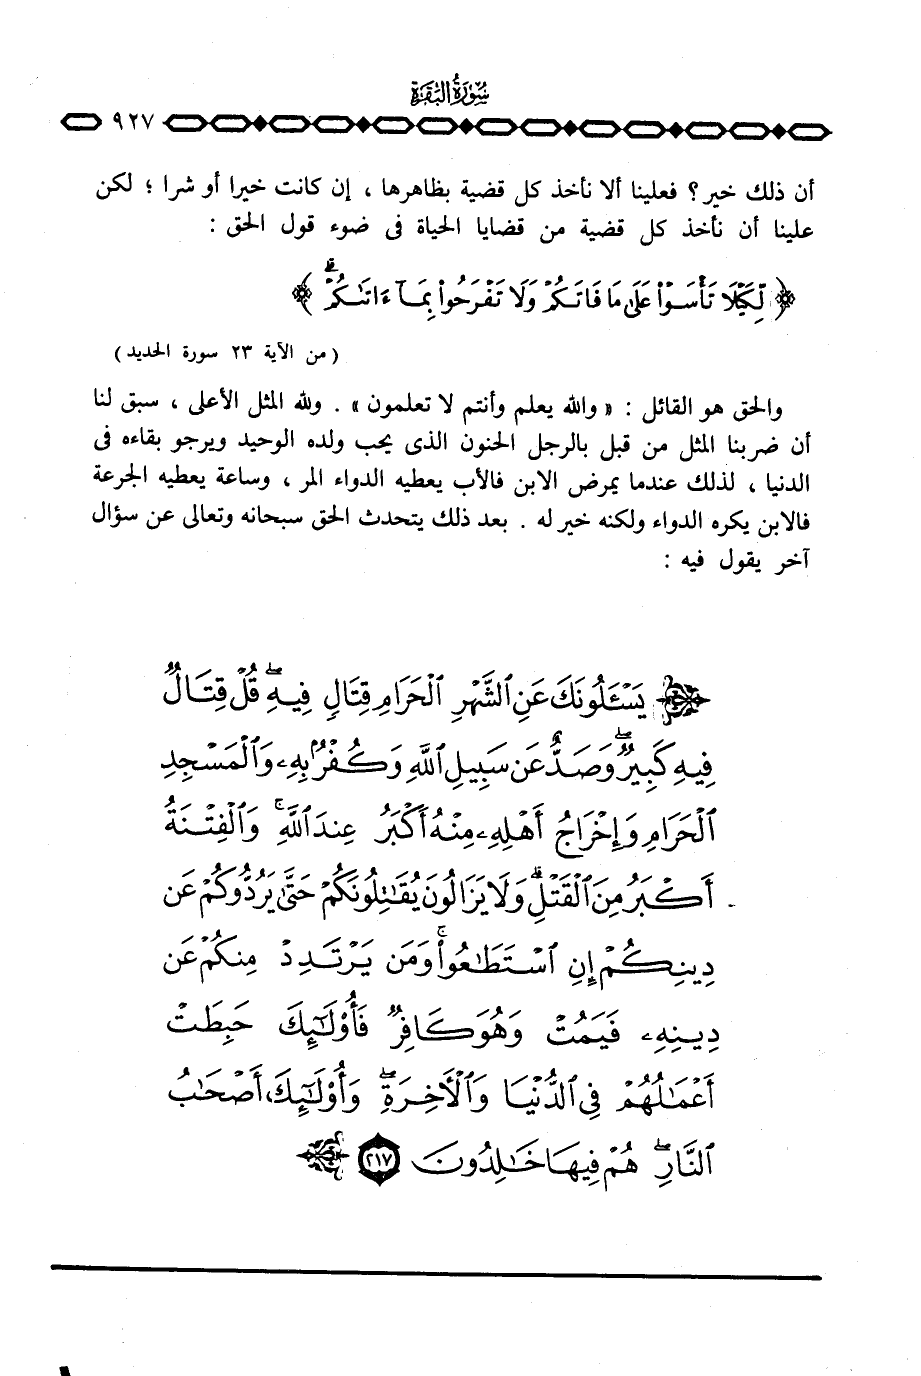 سُورَةُ البَقَرَة
٩٢٧
أن ذلك خير؟ فعلينا ألا نأخذ كل قضية بظاهرها ، إن كانت خيرا أو شرا ؛ لكن
علينا أن نأخذ كل قضية من قضايا الحياة فى ضوء قول الحق :
﴿ لِّكَيْلَا تَأْسَوْا۟ عَلَىٰ مَا فَاتَكُمْ وَلَا تَفْرَحُوا۟ بِمَآ ءَاتَىٰكُمْ ۗ ﴾
( من الآية ٢٣ سورة الحديد )
والحق هو القائل : « والله يعلم وأنتم لا تعلمون » . ولله المثل الأعلى ، سبق لنا
أن ضربنا المثل من قبل بالرجل الحنون الذى يحب ولده الوحيد ويرجو بقاءه فى
الدنيا ، لذلك عندما يمرض الابن فالأب يعطيه الدواء المر ، وساعة يعطيه الجرعة
فالابن يكره الدواء ولكنه خير له . بعد ذلك يتحدث الحق سبحانه وتعالى عن سؤال
آخر يقول فيه :
يَسْـَٔلُونَكَ عَنِ ٱلشَّهْرِ ٱلْحَرَامِ قِتَالٍ فِيهِ ۖ قُلْ قِتَالٌ
فِيهِ كَبِيرٌ ۖ وَصَدٌّ عَن سَبِيلِ ٱللَّهِ وَكُفْرٌۢ بِهِۦ وَٱلْمَسْجِدِ
ٱلْحَرَامِ وَإِخْرَاجُ أَهْلِهِۦ مِنْهُ أَكْبَرُ عِندَ ٱللَّهِ ۚ وَٱلْفِتْنَةُ
أَكْبَرُ مِنَ ٱلْقَتْلِ ۗ وَلَا يَزَالُونَ يُقَـٰتِلُونَكُمْ حَتَّىٰ يَرُدُّوكُمْ عَن
دِينِكُمْ إِنِ ٱسْتَطَـٰعُوا۟ ۚ وَمَن يَرْتَدِدْ مِنكُمْ عَن
دِينِهِۦ فَيَمُتْ وَهُوَ كَافِرٌ فَأُو۟لَـٰٓئِكَ حَبِطَتْ
أَعْمَـٰلُهُمْ فِى ٱلدُّنْيَا وَٱلْـَٔاخِرَةِ ۖ وَأُو۟لَـٰٓئِكَ أَصْحَـٰبُ
ٱلنَّارِ ۖ هُمْ فِيهَا خَـٰلِدُونَ ٢١٧